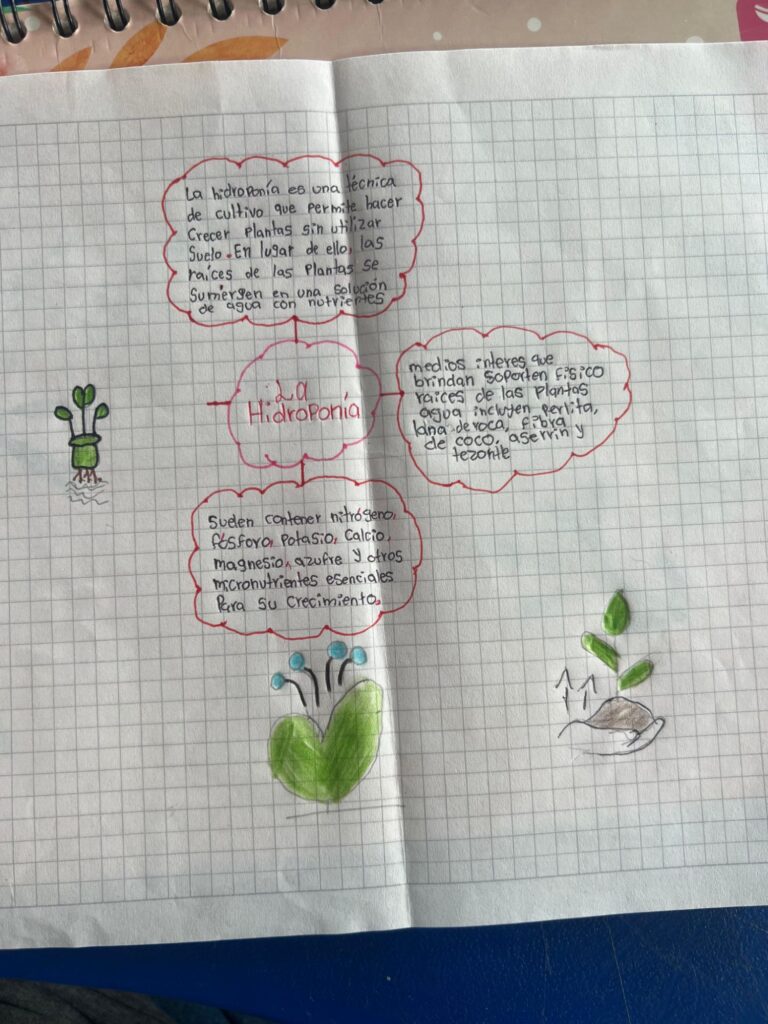 La hidroponía es una técnica
de cultivo que permite hacer
crecer plantas sin utilizar
suelo. En lugar de ello, las
raíces de las plantas se
sumergen en una solución
de agua con nutrientes
La
Hidroponía
medios interes que
brindan soporten físico
raíces de las plantas
agua incluyen perlita,
lana de roca, fibra
de coco, aserrín y
tezontle
Suelen contener nitrógeno,
fósforo, potasio, calcio,
magnesio, azufre y otros
micronutrientes esenciales
para su crecimiento.